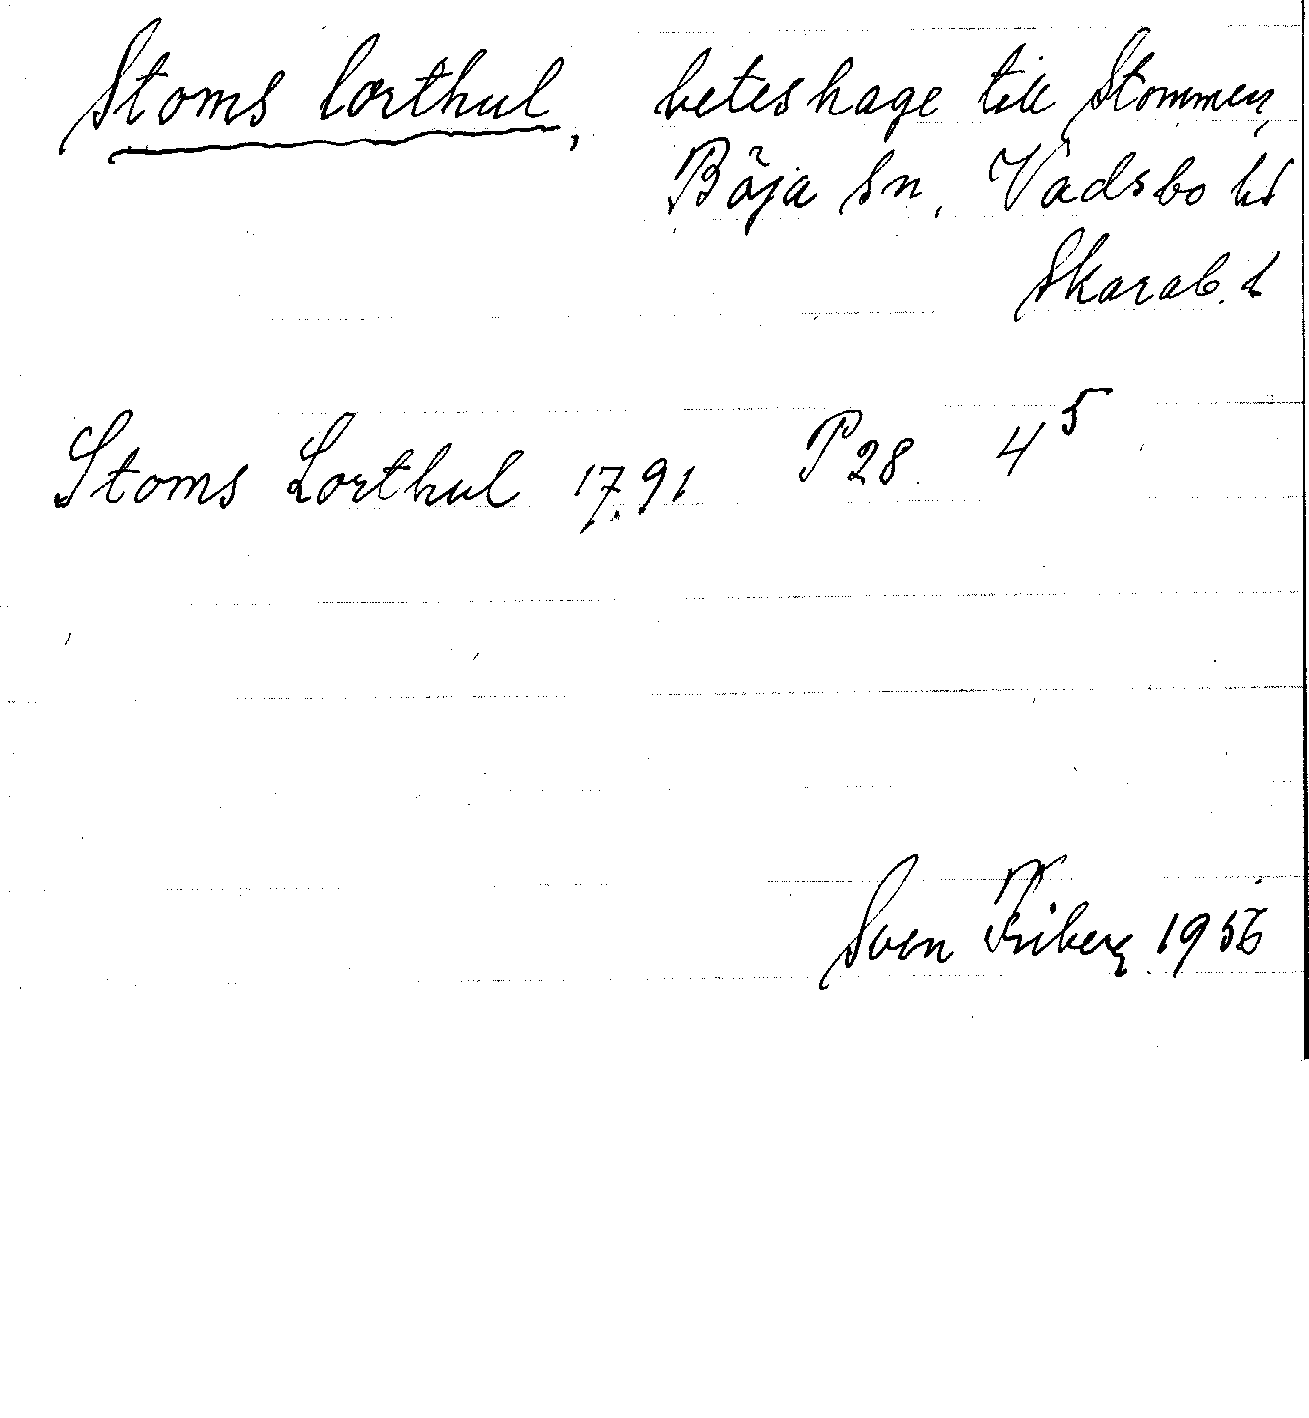 Stoms lorthul, beteshage till Stommen,
Böja sn, Vadsbo hd
Skarab. l
Stoms Lorthul 1791 P 28 4⁵
Sven Friberg 1956